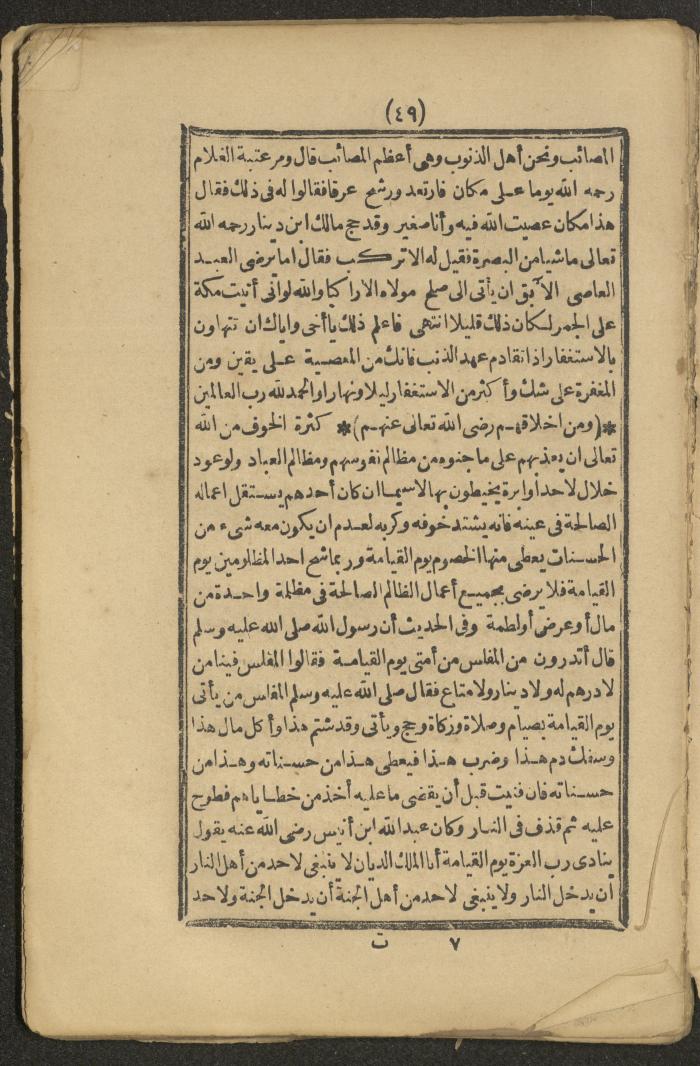 (٤٩)
المصائب ونحن أهل الذنوب وهى أعظم المصائب قال ومر عتبة الغلام
رحمه الله يوما على مكان فارتعد ورشح عرقا فقالوا له فى ذلك فقال
هذا مكان عصيت الله فيه وأنا صغير وقد حج مالك ابن دينار رحمه الله
تعالى ماشيا من البصرة فقيل له الا تركب فقال اما يرضى العبد
العاصى الآبق ان يأتى الى صلح مولاه الا راكبا والله لو انى أتيت مكة
على الجمر لكان ذلك قليلا انتهى فاعلم ذلك يا أخى واياك ان تتهاون
بالاستغفار اذا تقادم عهد الذنب فانك من المعصية على يقين ومن
المغفرة على شك وأكثر من الاستغفار ليلا ونهارا والحمد لله رب العالمين
*(ومن اخلاقهم رضى الله تعالى عنهم)* كثرة الخوف من الله
تعالى ان يعذبهم على ما جنوه من مظالم نفوسهم ومظالم العباد ولو عود
خلال لاحد أو ابرة يخيطون بها لاسيما ان كان أحدهم يستقل اعماله
الصالحة فى عينه فانه يشتد خوفه وكربه لعدم ان يكون معه شىء من
الحسنات يعطى منها الخصوم يوم القيامة وربما شح احد المظلومين يوم
القيامة فلا يرضى بجميع أعمال الظالم الصالحة فى مظلمة واحدة من
مال أو عرض أو لطمة وفى الحديث أن رسول الله صلى الله عليه وسلم
قال أتدرون من المفلس من أمتى يوم القيامة فقالوا المفلس فينا من
لا درهم له ولا دينار ولا متاع فقال صلى الله عليه وسلم المفلس من يأتى
يوم القيامة بصيام وصلاة وزكاة وحج ويأتى وقد شتم هذا وأكل مال هذا
وسفك دم هذا وضرب هذا فيعطى هذا من حسناته وهذا من
حسناته فان فنيت قبل أن يقضى ما عليه أخذ من خطاياهم فطرح
عليه ثم قذف فى النار وكان عبد الله ابن أنيس رضى الله عنه يقول
ينادى رب العزة يوم القيامة أنا الملك الديان لا ينبغى لاحد من أهل النار
أن يدخل النار ولا ينبغى لاحد من أهل الجنة أن يدخل الجنة ولاحد
٧ ت